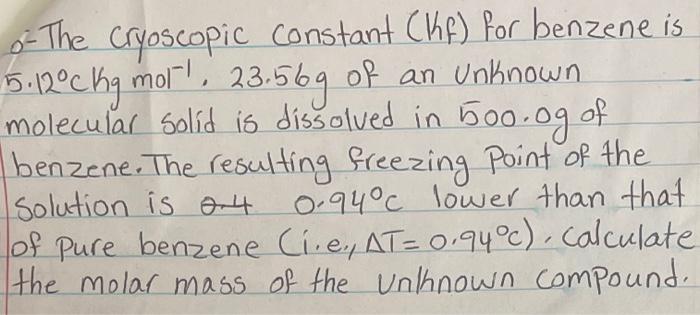 o- The cryoscopic constant (Kf) for benzene is
5.12°C kg mol⁻¹. 23.56g of an unknown
molecular solid is dissolved in 500.0g of
benzene. The resulting freezing Point of the
Solution is 0.94°C lower than that
of pure benzene (i.e., ΔT = 0.94°C). Calculate
the molar mass of the unknown compound.